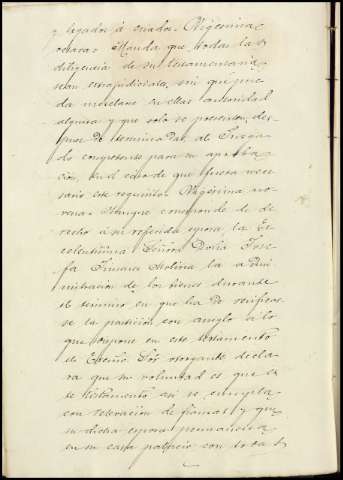 y legados á criados. Vigésima
octava. Manda que todas las
diligencias de su testamentaría
sean extrajudiciales, sin que pue
da mezclarse en ellas autoridad
alguna y que solo se presenten, des
pues de terminadas, al Juzga
do competente para su aproba
ción, en el caso de que fuera nece
sario este requisito. Vigésima no
vena. Aunque corresponde de de
recho á su referida esposa la Ex
celentísima Señora Doña Jose
fa Molina la admi
nistración de los bienes durante
el término en que ha de verificar
se la partición con arreglo a lo
que dispone en este testamento
el Exmo. Sor. otorgante decla
ra que su voluntad es que es
te testamento así se cumpla
con relevación de fianzas y que
su dicha esposa permanezca
en su casa palacio con todas